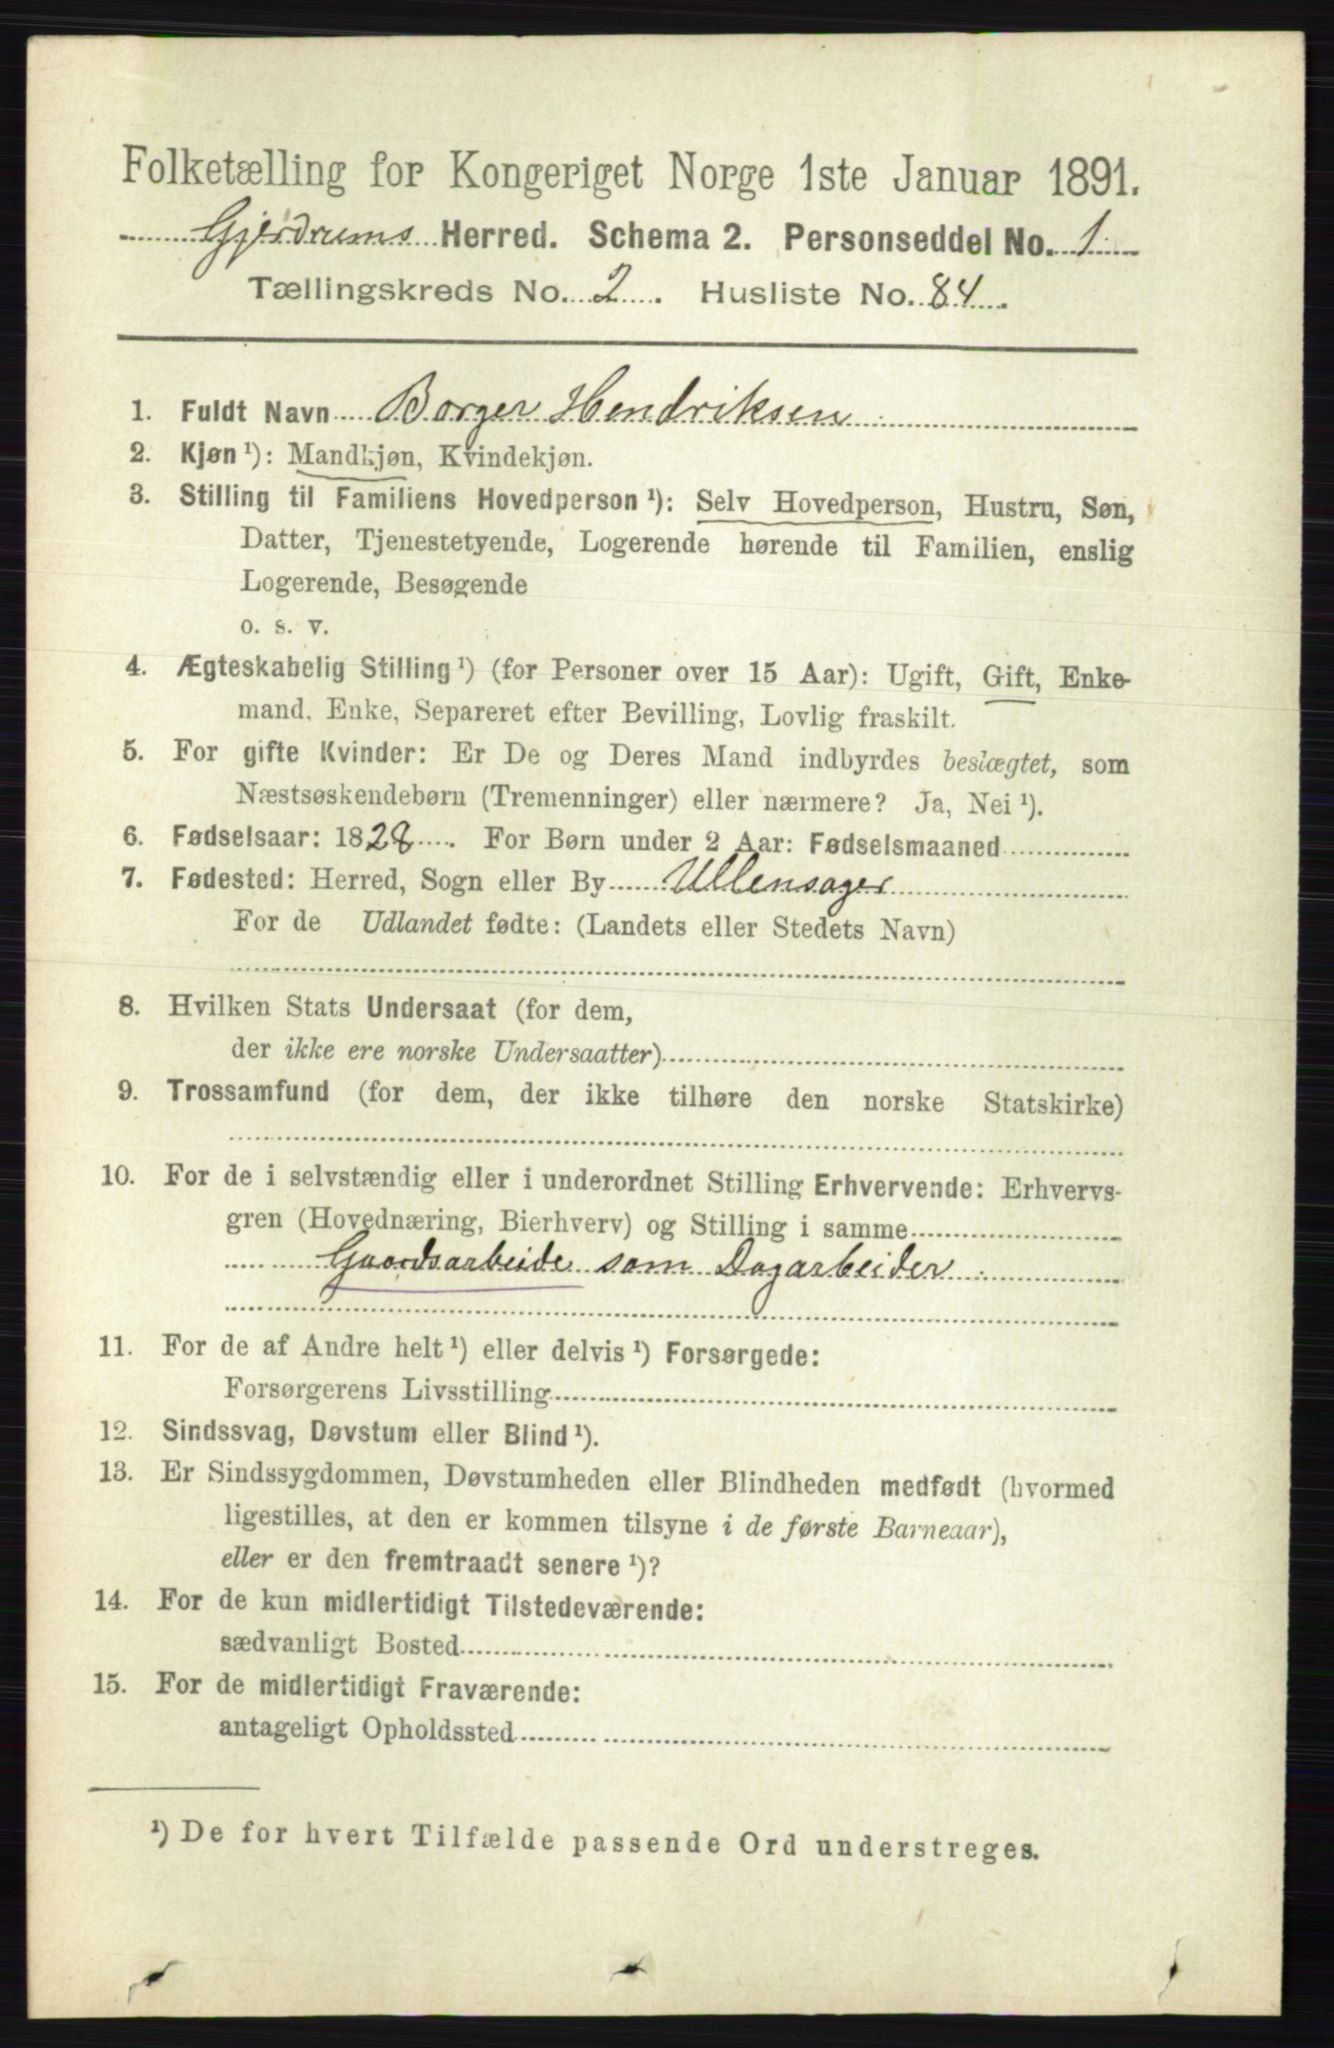 Folketælling for Kongeriget Norge 1ste Januar 1891.
Gjerdrums Herred. Schema 2. Personseddel No. 1
Tællingskreds No. 2. Husliste No. 84.
1. Fuldt Navn Borger Hendriksen
2. Kjøn¹): Mandkjøn, Kvindekjøn.
3. Stilling til Familiens Hovedperson¹): Selv Hovedperson, Hustru, Søn,
Datter, Tjenestetyende, Logerende hørende til Familien, enslig
Logerende, Besøgende
o. s. v.
4. Ægteskabelig Stilling¹) (for Personer over 15 Aar): Ugift, Gift, Enke-
mand, Enke, Separeret efter Bevilling, Lovlig fraskilt.
5. For gifte Kvinder: Er De og Deres Mand indbyrdes beslægtet, som
Næstsøskendebørn (Tremenninger) eller nærmere? Ja, Nei¹).
6. Fødselsaar: 1828. For Børn under 2 Aar: Fødselsmaaned
7. Fødested: Herred, Sogn eller By Ullensager
For de Udlandet fødte: (Landets eller Stedets Navn)
8. Hvilken Stats Undersaat (for dem,
der ikke ere norske Undersaatter)
9. Trossamfund (for dem, der ikke tilhøre den norske Statskirke)
10. For de i selvstændig eller i underordnet Stilling Erhvervende: Erhvervs-
gren (Hovednæring, Bierhverv) og Stilling i samme
Gaardsarbeide som Dagarbeider
11. For de af Andre helt¹) eller delvis¹) Forsørgede:
Forsørgerens Livsstilling
12. Sindssvag, Døvstum eller Blind¹).
13. Er Sindssygdommen, Døvstumheden eller Blindheden medfødt (hvormed
ligestilles, at den er kommen tilsyne i de første Barneaar),
eller er den fremtraadt senere¹)?
14. For de kun midlertidigt Tilstedeværende:
sædvanligt Bosted
15. For de midlertidigt Fraværende:
antageligt Opholdssted
¹) De for hvert Tilfælde passende Ord understreges.